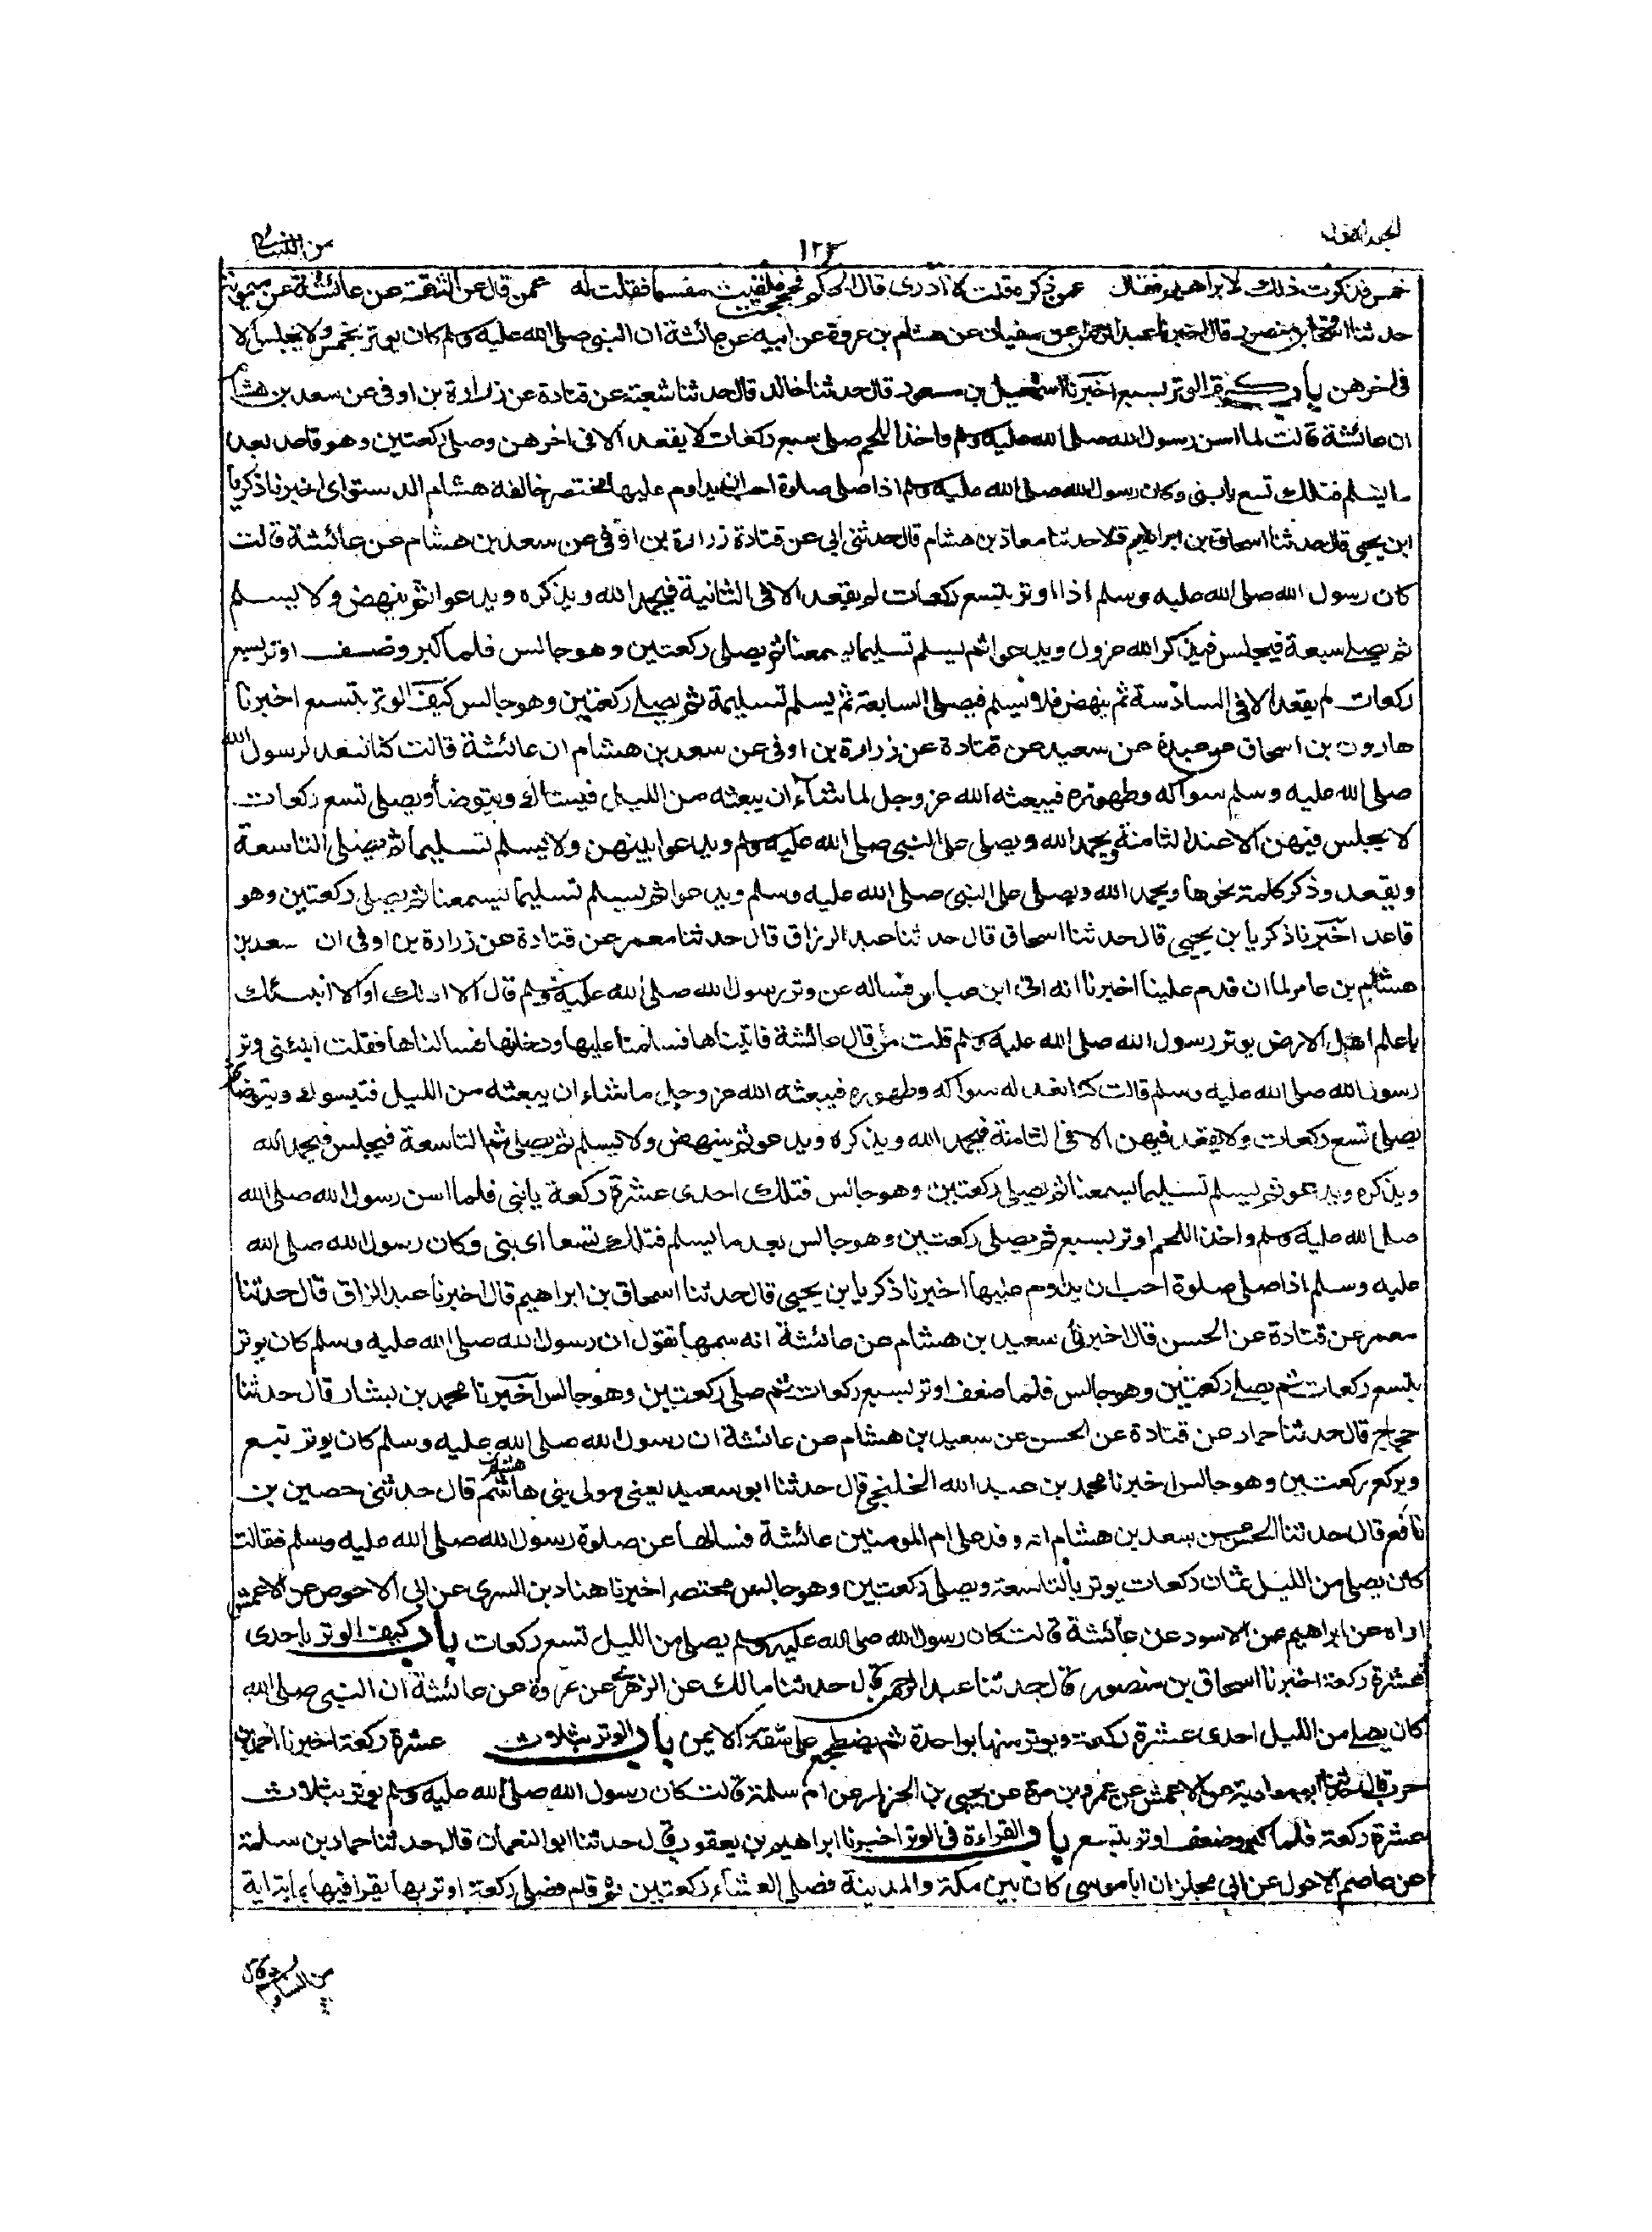 الجلد الاول
١٢٤
من النسائى
خمس فذكرت ذلك لابراهيم فقال عمن ذكره قلت لا ادرى قال الحكم فحججت فلقيت مقسما فقلت له عمن قال عن الثقة عن عائشة عن ميمونة
حدثنا اسحاق بن منصور قال اخبرنا عبد الرحمن عن سفيان عن هشام بن عروة عن ابيه عن عائشة ان النبى صلى الله عليه وسلم كان يوتر بخمس ولا يجلس الا
فى اخرهن باب كيف الوتر بسبع اخبرنا اسمعيل بن مسعود قال حدثنا خالد قال حدثنا شعبة عن قتادة عن زرارة بن اوفى عن سعد بن هشام
ان عائشة قالت لما اسن رسول الله صلى الله عليه وسلم واخذ اللحم صلى سبع ركعات لا يقعد الا فى اخرهن وصلى ركعتين وهو قاعد بعد
ما يسلم فتلك تسع يا بنى وكان رسول الله صلى الله عليه وسلم اذا صلى صلوة احب ان يداوم عليها مختصر خالفه هشام الدستواى اخبرنا ذكريا
ابن يحيى قال حدثنا اسحاق بن ابراهيم قال حدثنا معاذ بن هشام قال حدثنى ابى عن قتادة زرارة بن اوفى عن سعد بن هشام عن عائشة قالت
كان رسول الله صلى الله عليه وسلم اذا اوتر بتسع ركعات لم يقعد الا فى الثانية فيحمد الله ويذكره ويدعو ثم ينهض ولا يسلم
ثم يصلى سبعة فيجلس فيذكر الله عزول ويدعو ثم يسلم تسليما يسمعنا ثم يصلى ركعتين وهو جالس فلما كبر وضعف اوتر بسبع
ركعات لم يقعد الا فى السادسة ثم ينهض فلا يسلم فيصلى السابعة ثم يسلم تسليمة ثم يصلى ركعتين وهو جالس كيف الوتر بتسع اخبرنا
هارون بن اسحاق عن عبدة عن سعيد عن قتادة عن زرارة بن اوفى عن سعد بن هشام ان عائشة قالت كنا نعد لرسول الله
صلى الله عليه وسلم سواكه وطهوره فيبعثه الله عز وجل لما شاء ان يبعثه من الليل فيستاك ويتوضأ ويصلى تسع ركعات
لا يجلس فيهن الا عند الثامنة ويحمد الله ويصلى على النبى صلى الله عليه وسلم ويدعو بينهن ولا يسلم تسليما ثم يصلى التاسعة
ويقعد وذكر كلمة نحوها ويحمد الله ويصلى على النبى صلى الله عليه وسلم ويدعو ثم يسلم تسليما يسمعنا ثم يصلى ركعتين وهو
قاعد اخبرنا ذكريا بن يحيى قال حدثنا اسحاق قال حدثنا عبد الرزاق قال حدثنا معمر عن قتادة عن زرارة بن اوفى ان سعد بن
هشام بن عامر لما ان قدم علينا اخبرنا انه اتى ابن عباس فساله عن وتر رسول الله صلى الله عليه وسلم قال الا ادلك او الا انبئك
باعلم اهل الارض بوتر رسول الله صلى الله عليه وسلم قلت من قال عائشة فاتيناها فسلمنا عليها ودخلنا فسالناها فقلت انبئنى وتر
رسول الله صلى الله عليه وسلم قالت كنا نعد له سواكه وطهوره فيبعثه الله عز وجل ما شاء ان يبعثه من الليل فتيسوك ويتوضأ ثم
يصلى تسع ركعات ولا يقعد فيهن الا فى الثامنة فيحمد الله ويذكره ويدعو ثم ينهض ولا يسلم ثم يصلى ثم التاسعة فيجلس فيحمد الله
ويذكره ويدعو ثم يسلم تسليما يسمعنا ثم يصلى ركعتين وهو جالس فتلك احدى عشرة ركعة يا بنى فلما اسن رسول الله صلى الله
صلى الله عليه وسلم واخذ اللحم اوتر بسبع ثم يصلى ركعتين وهو جالس بعد ما يسلم فتلك تسعا اى بنى وكان رسول الله صلى الله
عليه وسلم اذا صلى صلوة احب ان يداوم عليها اخبرنا ذكريا بن يحيى قال حدثنا اسحاق بن ابراهيم قال اخبرنا عبد الرزاق قال حدثنا
معمر عن قتادة عن الحسن قال اخبرنى سعيد بن هشام عن عائشة انه سمعها تقول ان رسول الله صلى الله عليه وسلم كان يوتر
بتسع ركعات ثم يصلى ركعتين وهو جالس فلما ضعف اوتر بسبع ركعات ثم صلى ركعتين وهو جالس اخبرنا محمد بن بشار قال حدثنا
حجاج قال حدثنا حماد عن قتادة عن الحسن عن سعيد بن هشام عن عائشة ان رسول الله صلى الله عليه وسلم كان يوتر بتسع
ويركع ركعتين وهو جالس اخبرنا محمد بن عبد الله الخلنجى قال حدثنا ابو سعيد يعنى مولى بنى هاشم قال حدثنى حصين بن
نافع قال حدثنا الحسن عن سعد بن هشام انه وفد على ام المومنين عائشة فسالها عن صلوة رسول الله صلى الله عليه وسلم فقالت
كان يصلى من الليل ثمان ركعات يوتر بالتاسعة ويصلى ركعتين وهو جالس مختصر اخبرنا هناد بن السرى عن ابى الاحوص عن الاعمش
اراه عن ابراهيم عن الاسود عن عائشة قالت كان رسول الله صلى الله عليه وسلم يصلى من الليل تسع ركعات باب كيف الوتر باحدى
عشرة ركعة اخبرنا اسحاق بن منصور قال حدثنا عبد الرحمن قال حدثنا مالك عن الزهرى عن عروة عن عائشة ان النبى صلى الله
كان يصلى من الليل احدى عشرة ركعة ويوتر منها بواحدة ثم يضطجع على شقه الايمن باب الوتر بثلاث عشرة ركعة اخبرنا احمد بن
حرب قال حدثنا ابو معاوية عن الاعمش عن عمرو بن مرة عن يحيى بن الجزار عن ام سلمة قالت كان رسول الله صلى الله عليه وسلم يوتر بثلاث
عشرة ركعة فلما كبر وضعف اوتر بتسع باب القراءة فى الوتر اخبرنا ابراهيم بن يعقوب قال حدثنا ابو النعمان قال حدثنا حماد بن سلمة
عن عاصم الاحول عن ابى مجلز ان ابا موسى كان بين مكة والمدينة فصلى العشاء ركعتين ثم قام فصلى ركعة اوتر بها يقرا فيها بماية اية